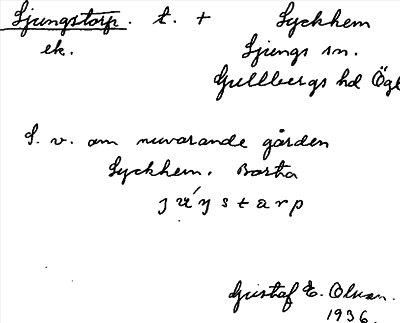 Ljungstorp. t. + Lyckhem
ek. Ljungs sn.
Gullbergs hd Ögl
S. v. om nuvarande gården
Lyckhem. Borta
Gustaf E. Olsson.
1936.